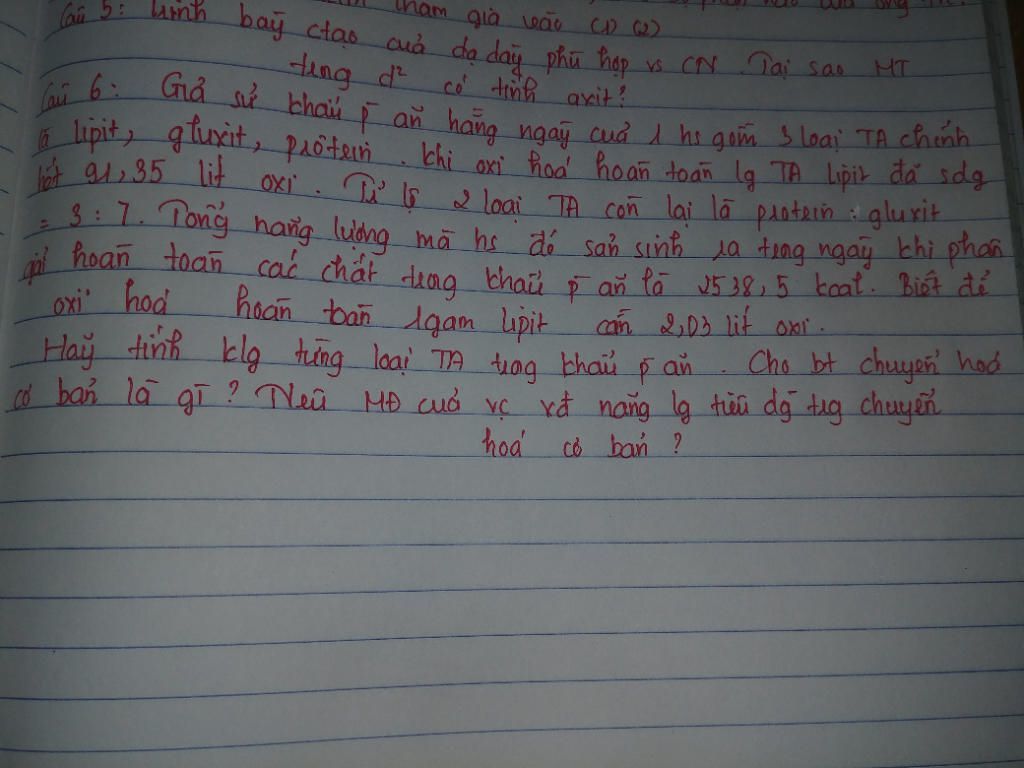 tham gia vào (1) (2)
Câu 5: trình bày ctạo của dạ dày phù hợp vs CN. Tại sao MT
trng d² có tính axit?
Câu 6: Giả sử khẩu p ăn hàng ngày của 1 hs gồm 3 loại TA chính
là lipit, gluxit, prôtein. khi oxi hoá hoàn toàn lg TA lipit đã sdg
hết 91,35 lít oxi. Tỉ lệ 2 loại TA còn lại là protein : gluxit
= 3 : 7. Tổng năng lượng mà hs đó sản sinh ra trng ngày khi phân
giải hoàn toàn các chất trng khẩu p ăn là 2538,5 kcal. Biết để
oxi hoá hoàn toàn 1gam lipit cần 2,03 lít oxi.
Hãy tính klg từng loại TA trng khẩu p ăn. Cho bt chuyển hoá
cơ bản là gì? Nêu MĐ của vc xđ năng lg tiêu dg trg chuyển
hoá cơ bản?